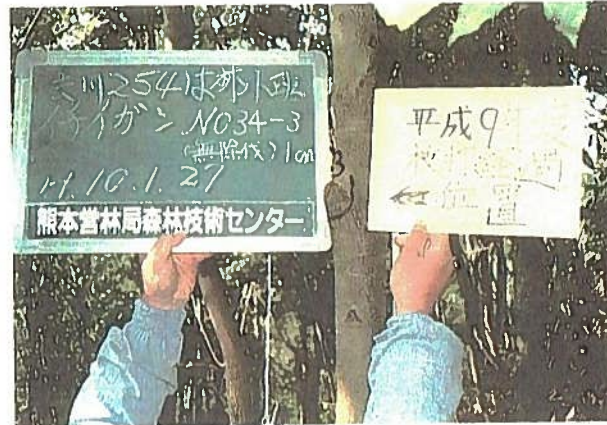 川254は林小班
イチイガシ NO34-3
(無除伐) 1cm
H.10.1.27
熊本営林局森林技術センター
3
平成9
位置